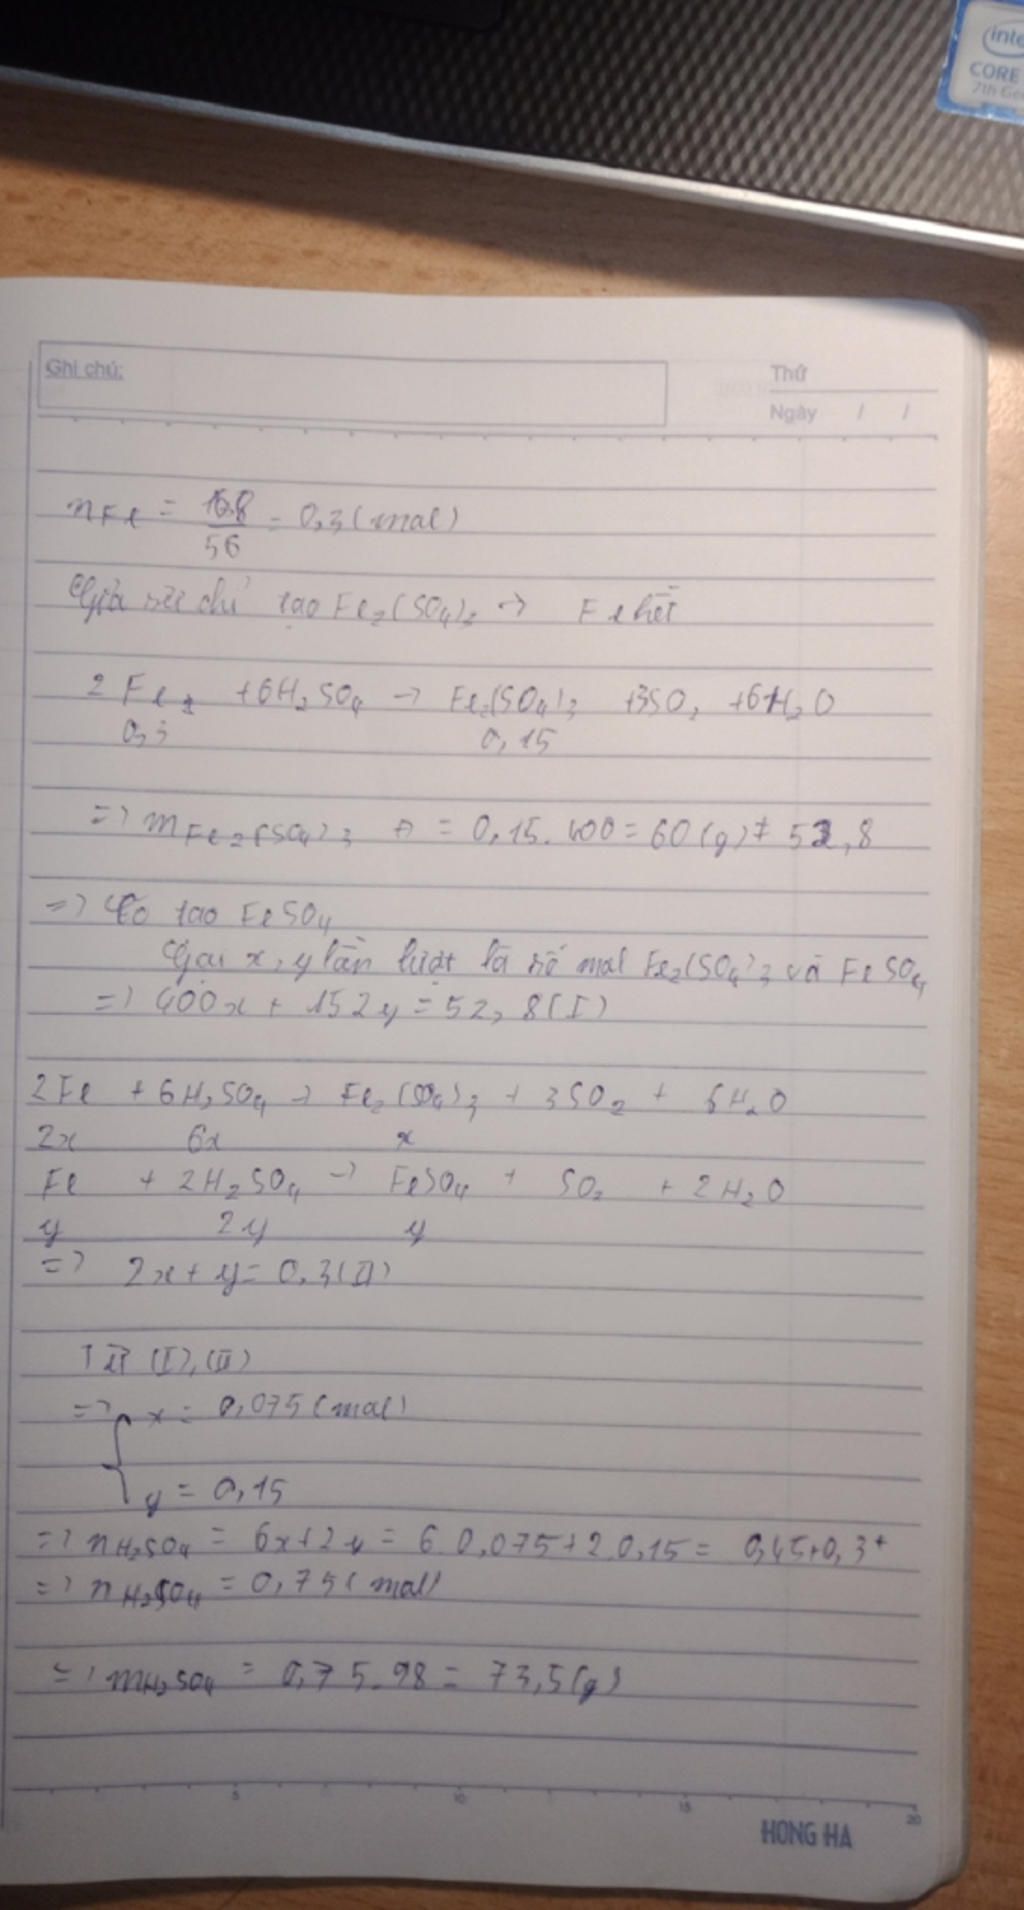 intel
CORE
7th Gen
Ghi chú:
Thứ
Ngày / /
nFe = 16,8/56 = 0,3 (mol)
Giả sử chỉ tạo Fe2(SO4)3 -> Fe hết
2Fe + 6H2SO4 -> Fe2(SO4)3 + 3SO2 + 6H2O
0,3 0,15
=> mFe2(SO4)3 = 0,15.400 = 60(g) ≠ 52,8
=> Có tạo FeSO4
Gọi x, y lần lượt là số mol Fe2(SO4)3 và FeSO4
=> 400x + 152y = 52,8 (I)
2Fe + 6H2SO4 -> Fe2(SO4)3 + 3SO2 + 6H2O
2x 6x x
Fe + 2H2SO4 -> FeSO4 + SO2 + 2H2O
y 2y y
=> 2x + y = 0,3 (II)
Từ (I), (II)
=> { x = 0,075 (mol)
y = 0,15
=> nH2SO4 = 6x + 2y = 6.0,075 + 2.0,15 = 0,45 + 0,3
=> nH2SO4 = 0,75 (mol)
=> mH2SO4 = 0,75.98 = 73,5 (g)
5 10 15 20
HONG HA